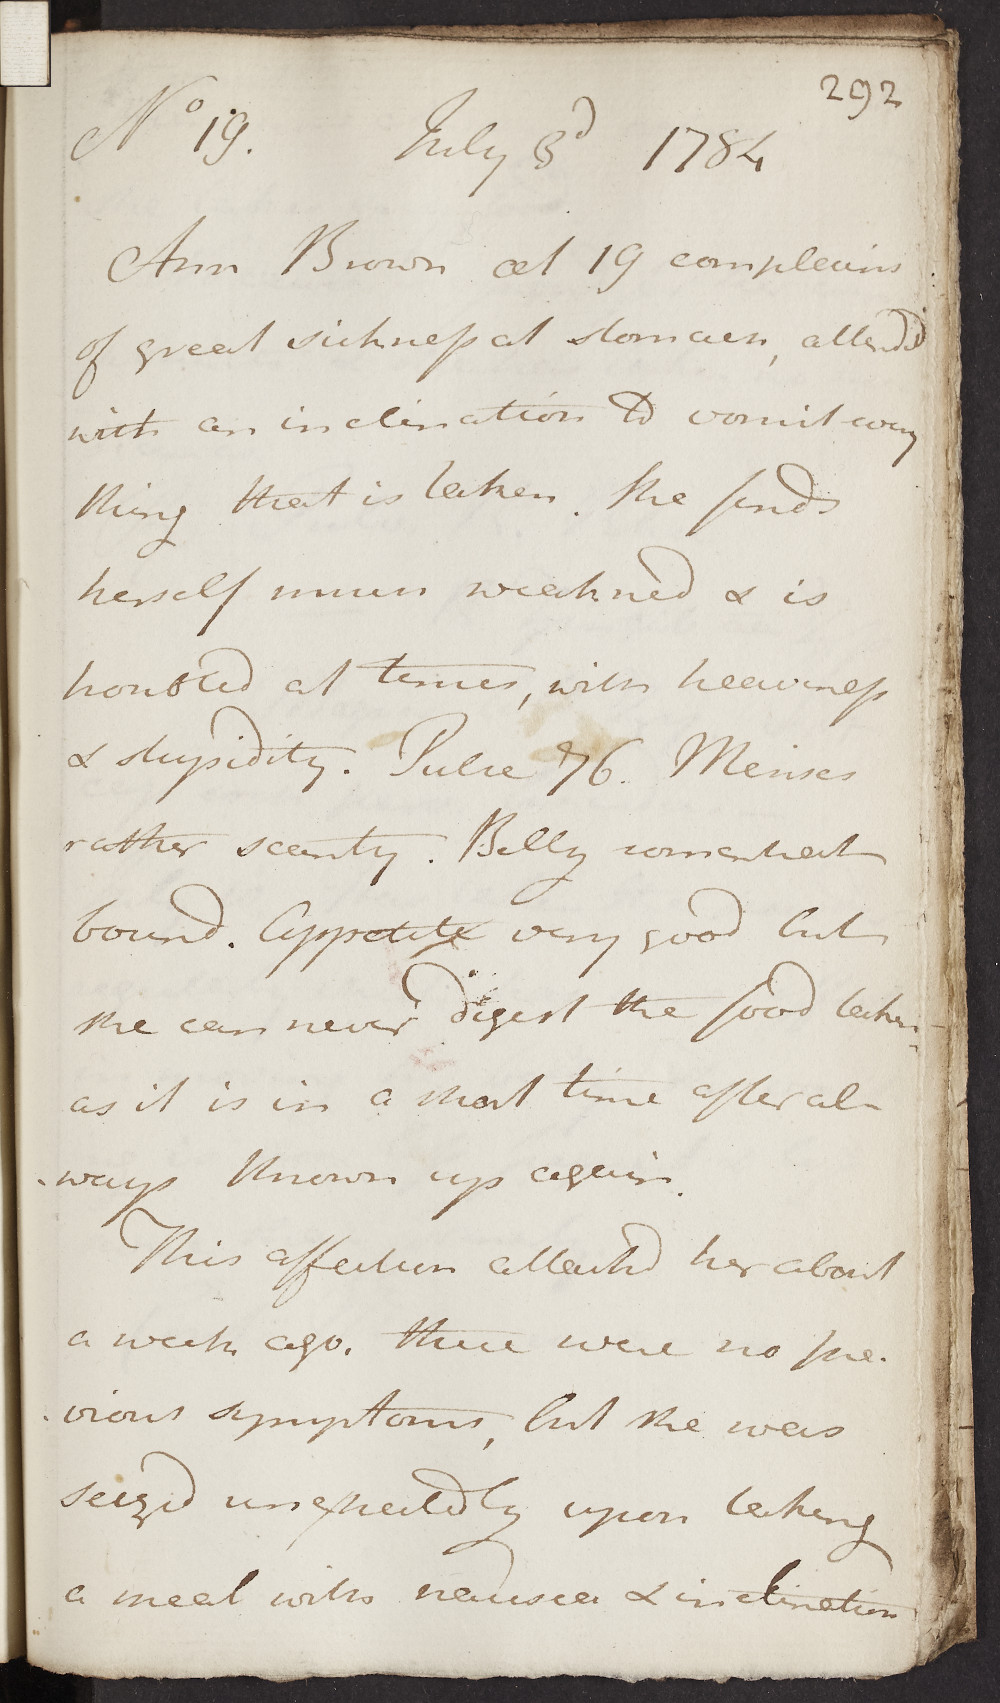 292
No 19. July 3d 1784
Ann Brown aet 19 complains
of great sickness at stomach, attendd
with an inclination to vomit every
thing that is taken. She finds
herself much weakned & is
troubled at times, with heaviness
& stupidity. Pulse 76. Menses
rather scanty. Belly somewhat
bound. Appetite very good but
she can never digest the food taken
as it is in a short time after al-
ways thrown up again.
This affection attackd her about
a week ago. there were no pre-
vious symptoms, but she was
seizd unexpectedly upon taking
a meal with nausea & inclination